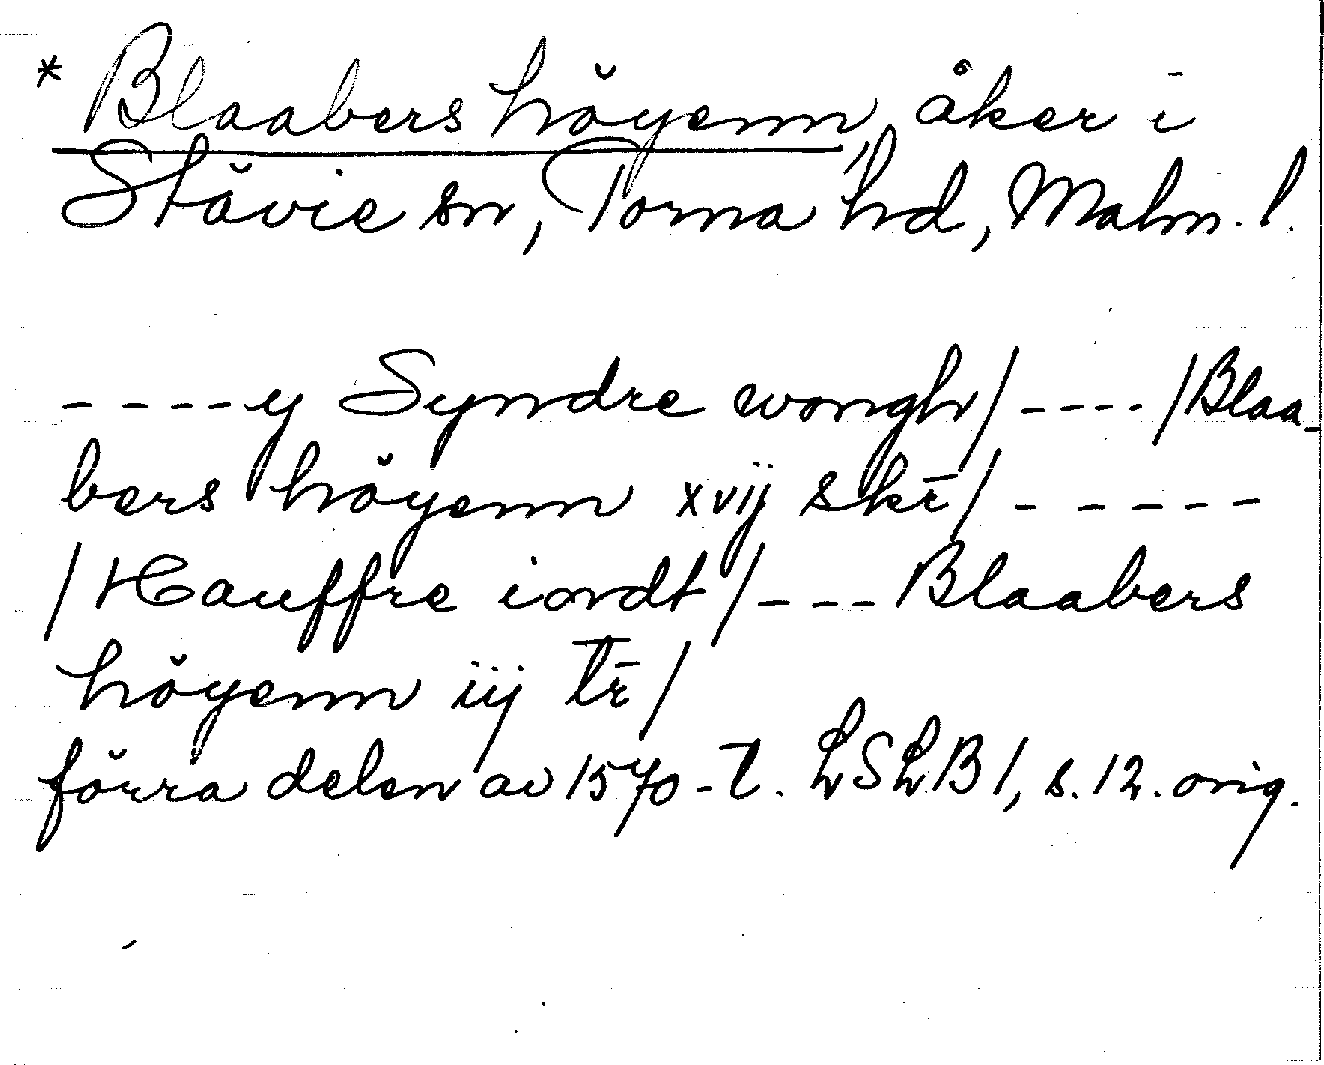 * Blaabers höyenn, åker i
Stävie sn, Torna hd, Malm. l.
----y Syndre wongh/ ---- /Blaa-
bers höyenn xvij skr̄/ -----
/Hauffre iordt/ --- Blaabers
höyenn iij tr̄/
förra delen av 1570-t. LSLB 1, s. 12. orig.